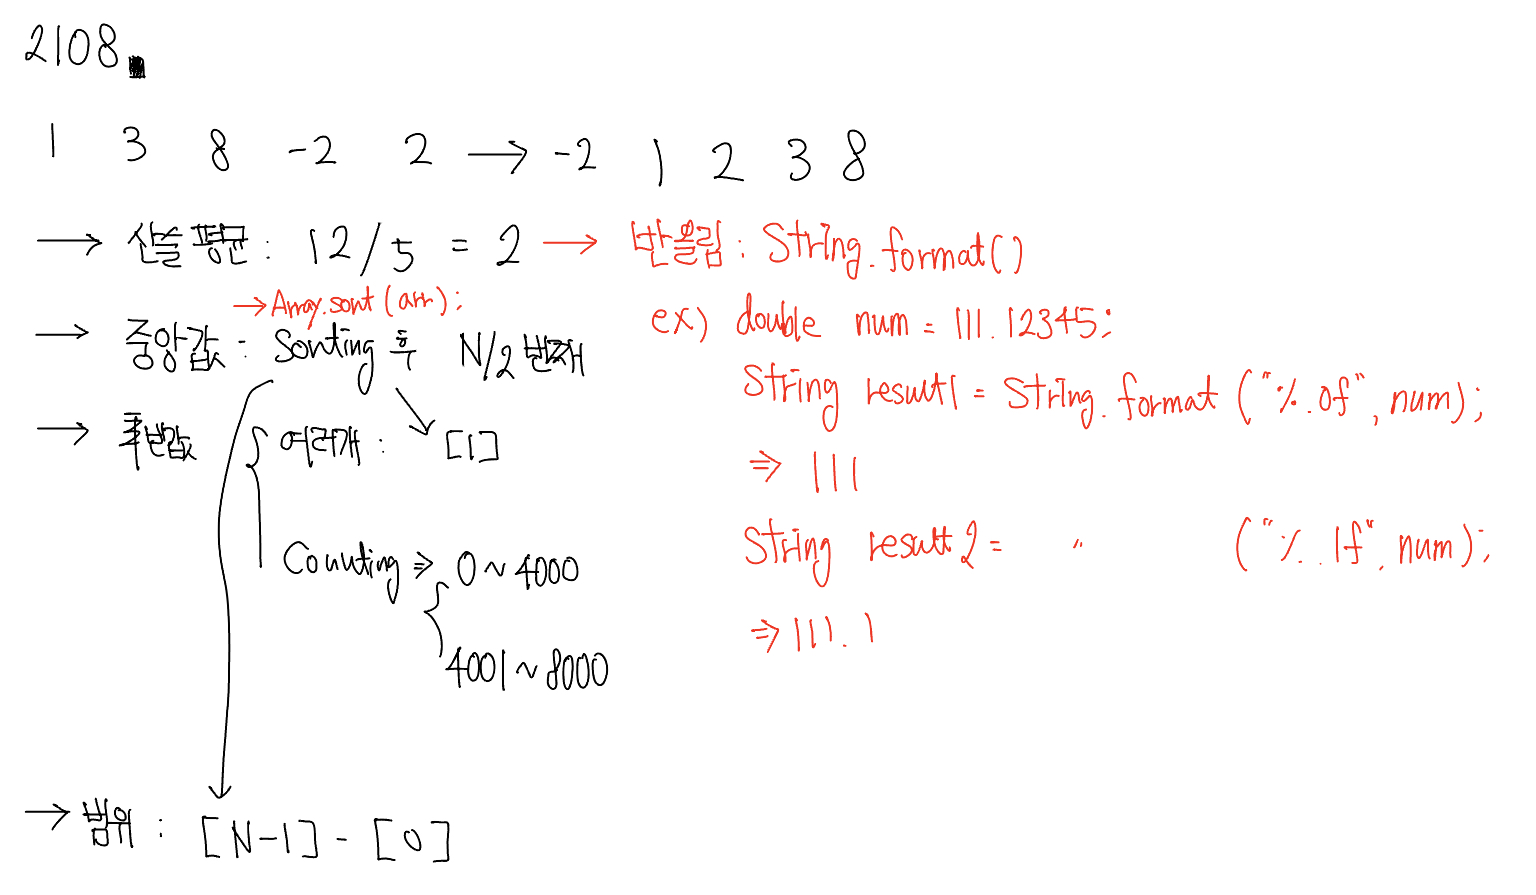 2108.
1 3 8 -2 2 → -2 1 2 3 8
→ 산술 평균 : 12/5 = 2 → 반올림 : String.format()
→ Array.sort(arr);
ex) double num = 111.12345;
→ 중앙값 : Sorting 후 N/2 번째
String result1 = String.format ("%.0f", num);
→ 최빈값 { 여러개 : [1]
⇒ 111
String result2 = " ("%.1f", num);
Counting ⇒ { 0 ~ 4000
⇒ 111.1
4001 ~ 8000
→ 범위 : [N-1] - [0]